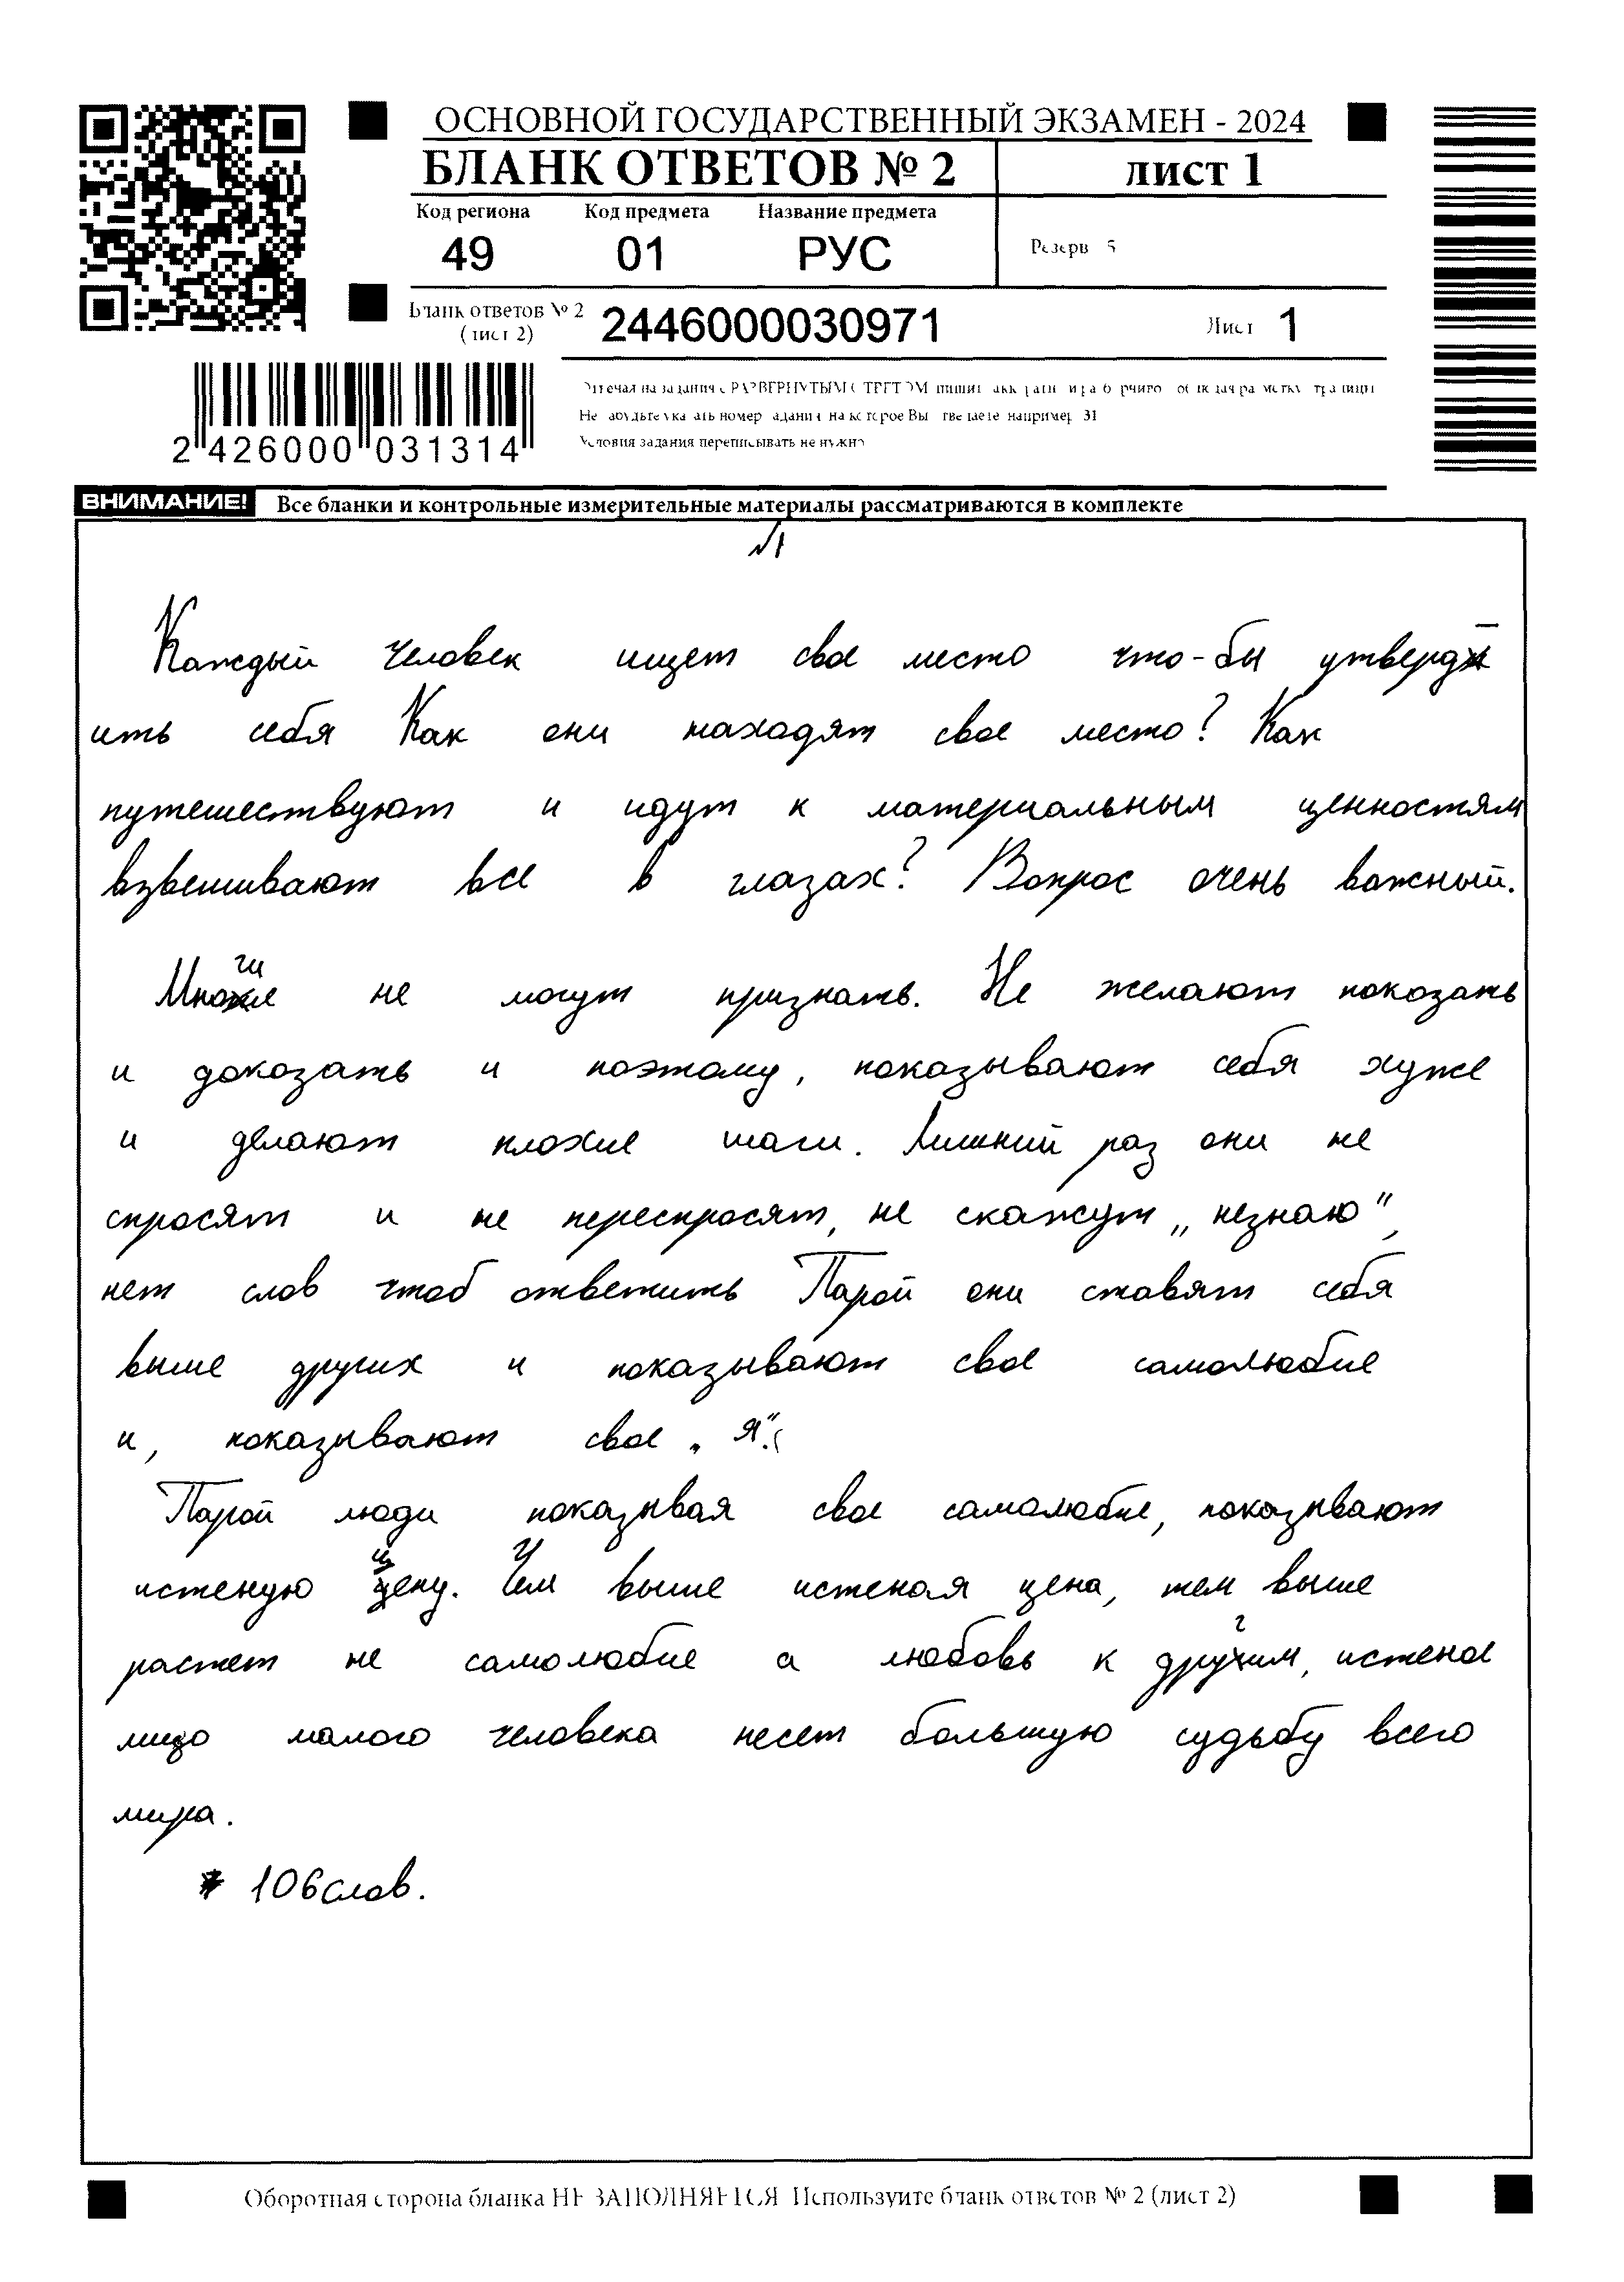 ОСНОВНОЙ ГОСУДАРСТВЕННЫЙ ЭКЗАМЕН - 2024
БЛАНК ОТВЕТОВ № 2
лист 1
Код региона Код предмета Название предмета
49 01 РУС
Резерв 5
Бланк ответов № 2
(лист 2)
2446000030971
Лист 1
2 426000 031314
Условия задания переписывать не нужно
ВНИМАНИЕ! Все бланки и контрольные измерительные материалы рассматриваются в комплекте
№1
Каждый человек ищет свое место что-бы утверд
ить себя Как они находят свое место? Как
путешествуют и идут к материальным ценностям
взвешивают все в глазах? Вопрос очень важный.
Многие не могут признать. Не желают показать
и доказать и поэтому, показывают себя хуже
и делают плохие шаги. Лишний раз они не
спросят и не переспросят, не скажут „незнаю",
нет слов чтоб ответить Парой они ставят себя
выше других и показывают свое самолюбие
и, показывают свое „Я".
Парой люди показывая свое самолюбие, показывают
истеную цену. Чем выше истеная цена, тем выше
растет не самолюбие а любовь к другим, истеное
лицо малого человека несет большую судьбу всего
мира.
106 слов.
Оборотная сторона бланка НЕ ЗАПОЛНЯЕТСЯ Используйте бланк ответов № 2 (лист 2)